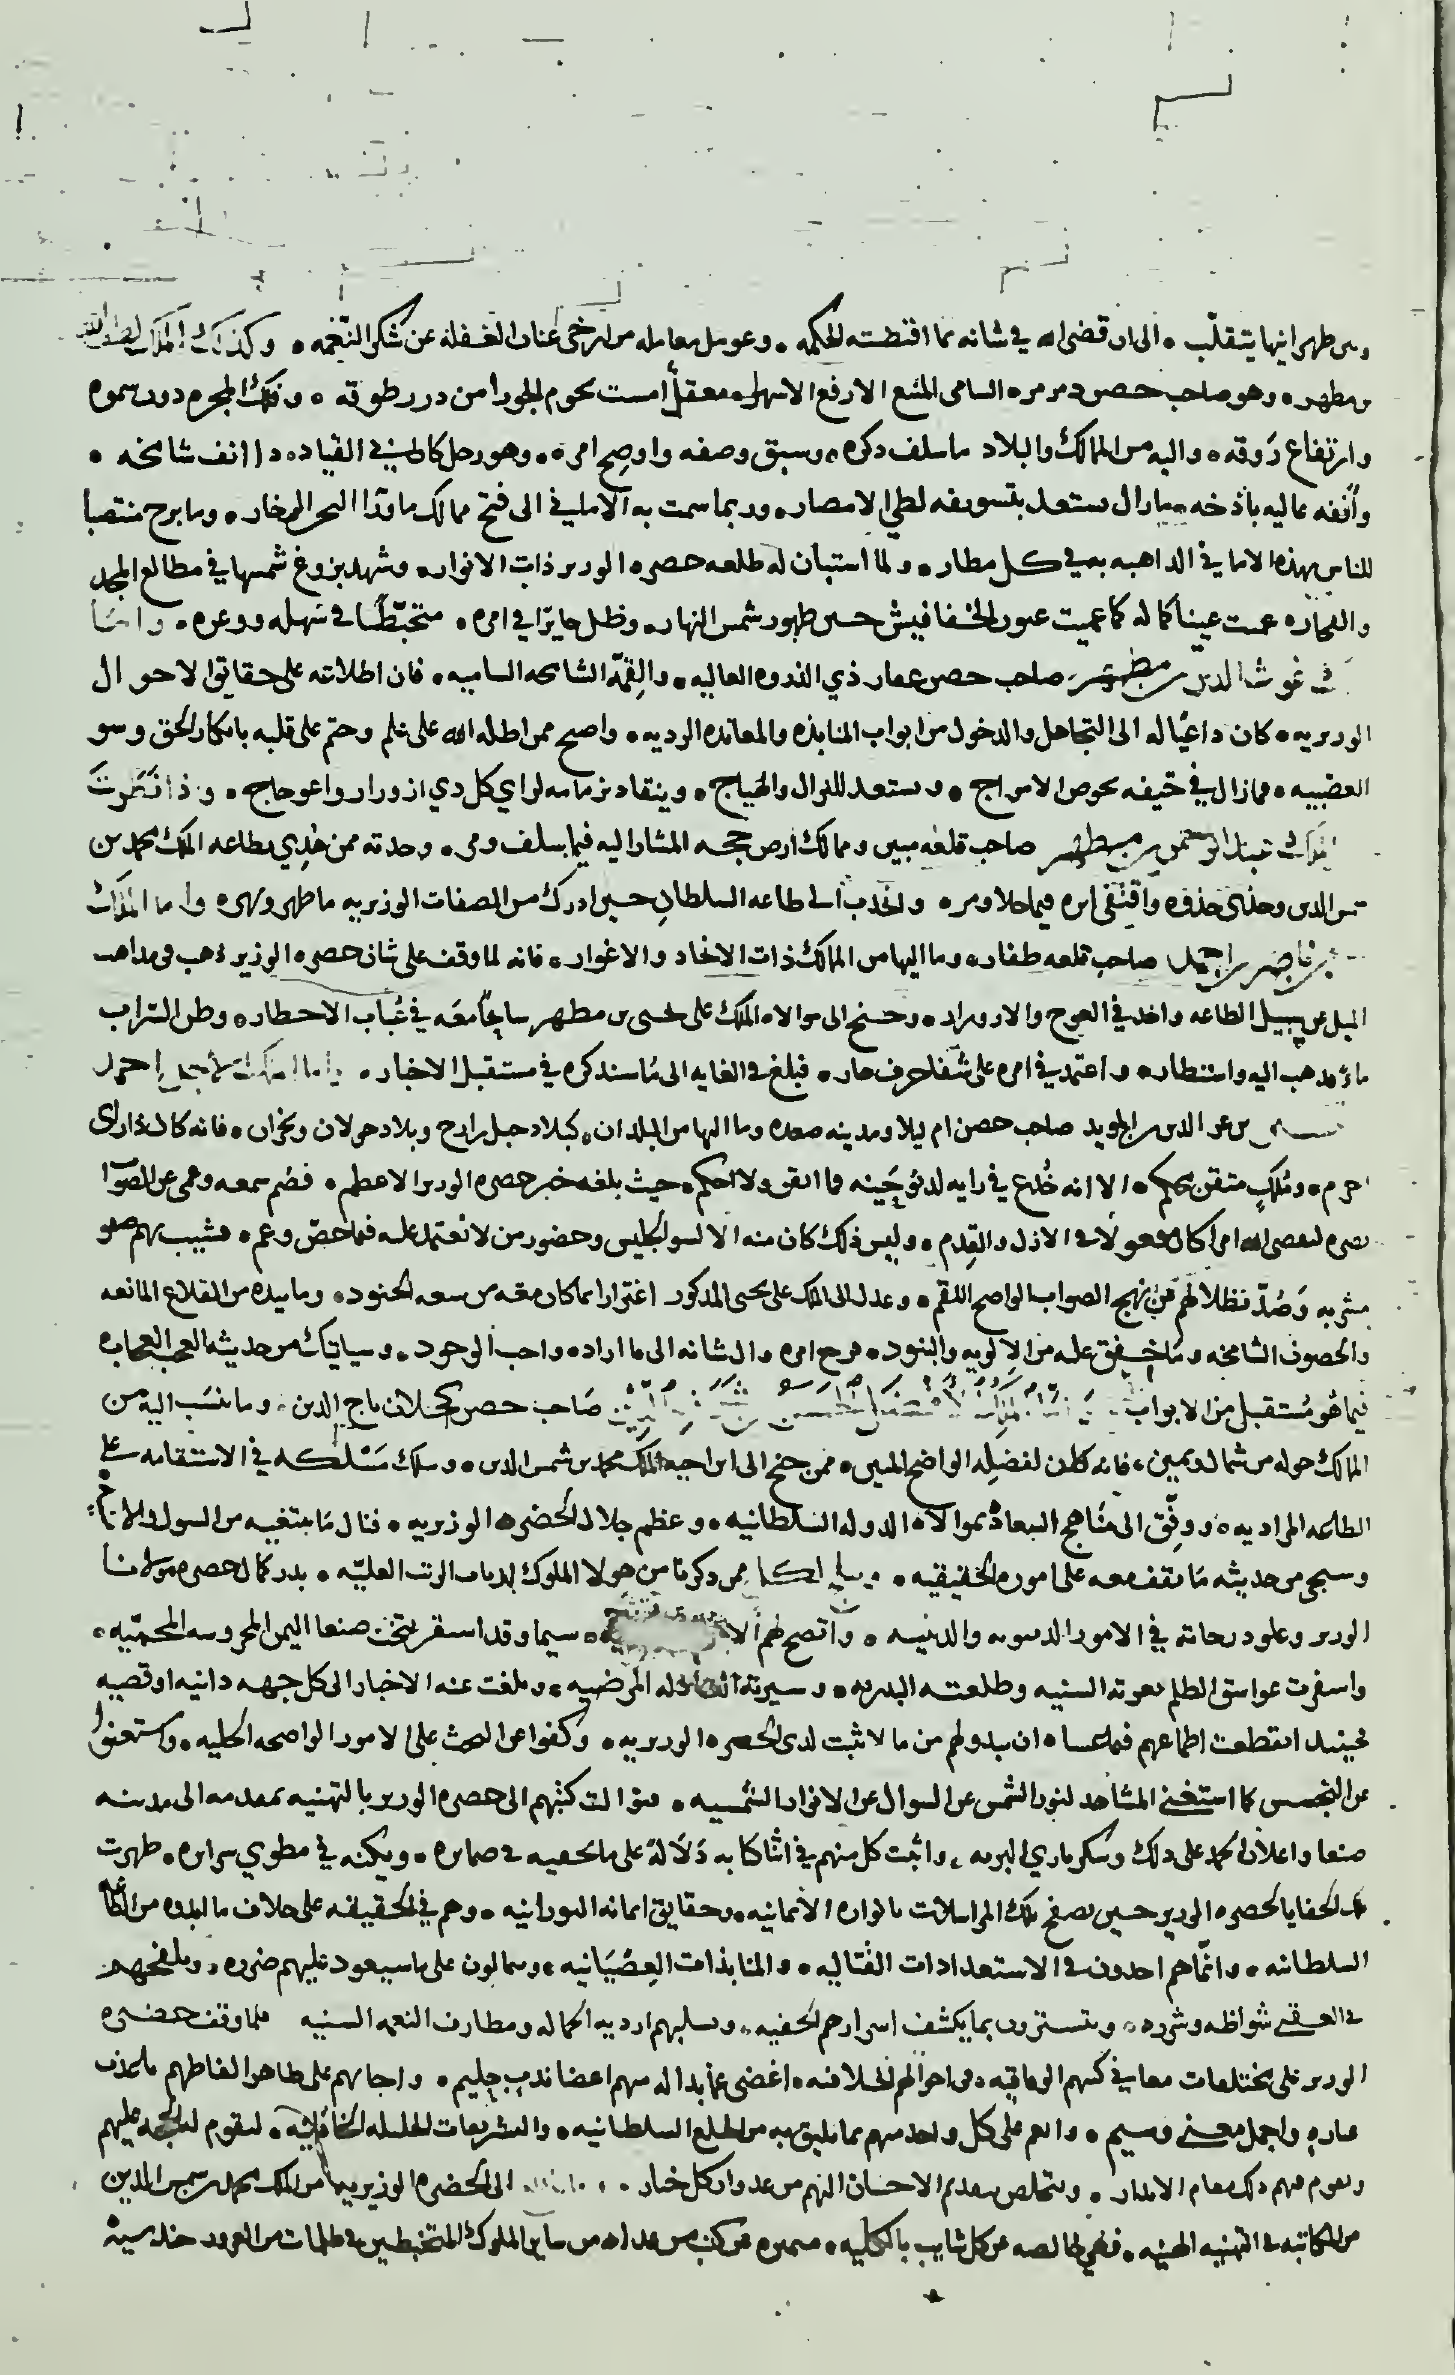 ومن ظهر انيها يتقلب ۰ الى ان قضى الله في شانه مما اقتضته الحكمه ۰ وعومل معامله من ارخى عنان الغفله عن شكر النعمه ۰ وكذلك الملك لطف الله
بن مطهر ۰ وهو صاحب حصن ذي مرمر ۰ السامى المنع الارفع الاسهل ۰ معقل امست نجوم الجوزا من درر طوقه ۰ وفلك المجره دون سموه
وارتفاع زوقه ۰ واليه من الممالك والبلاد ما سلف ذكره ۰ وسبق وصفه واوضح امره ۰ وهو رجل كان لين القياده ۰ ذا انف شامخه ۰
وأنفه عاليه باذخه ۰ ما زال يستعد بتسويفه لطي الامصار ۰ وربما سمت به الامانى الى فتح ممالك ما ورا البحر الزخار ۰ وما برح منتصبا
للناس بهذه الامانى الذاهبه به في كل مطار ۰ ولما استبان له طلعه حضره الوزير ذات الانوار ۰ وشهد بزوغ شمسها في مطالع المجد
والفخار ۰ عميت عينا كماله كما عميت عيون الخفافيش حين ظهور شمس النهار ۰ وظل حايرا في امره ۰ متخبطا في سهله ووعره ۰ واما
غوث الدين بن مطهر صاحب حصن عفار ذي الذروه العاليه ۰ والقمه الشامخه الساميه ۰ فان اطلاعه على حقايق الاحوال
الوزيريه ۰ كان داعيا له الى التجاهل والدخول من ابواب المنابذه والمعانده الرديه ۰ واصبح ممن اضله الله على علم وختم على قلبه بانكار الحق وسو
العصبيه ۰ فما زال في حيفه يخوض الامواج ۰ ويستعد للنزال والهياج ۰ وينقاد بزمامه لراي كل ذي ازورار واعوجاج ۰
الملك عبد الرحمن بن مطهر صاحب قلعه مبين وممالك ارض حجه المشار اليه فيما سلف ومر ۰ وحدته ممن غذي بطاعه الملك محمد بن
شمس الدين وحذى حذوه واقتفى اثره فيما حلا ومر ۰ وانجذب الى طاعه السلطان حين ادرك من الصفات الوزيريه ما ظهر وبهر ۰ واما الملك
بن ناصر بن احمد صاحب قلعه ظفار ۰ وما اليها من الممالك ذات الانجاد والاغوار ۰ فانه لما وقف على شان حضره الوزير ذهب في مذاهب
الميل عن سبيل الطاعه واخذ في العوج والازورار ۰ وجنح الى موالاه الملك على يحيى بن مطهر سابحا معه في عباب الاخطار ۰ وظن السراب
ماء فذهب اليه واستطار ۰ واعتمد في امره على شفا جرف هار ۰ فبلغ في الغايه الى ما سنذكره في مستقبل الاخبار ۰ واما الملك احمد
بن عز الدين بن المويد صاحب حصن ام ليلا ومدينه صعده وما اليها من البلدان ۰ كبلاد جبل رازح وبلاد خولان ونجران ۰ فانه كان ذا راى
احزم ۰ وملك متقن محكم ۰ الا انه خدع في رايه لدنو حينه فما اتقن ولا احكم ۰ حيث بلغه خبر حضره الوزير الاعظم ۰ فصم سمعه وعمى عن الصواب
بصره ليقضى الله امرا كان مفعولا في الازل والقدم ۰ وليس ذلك كان منه الا لسو الجليس وحضور من لا يعتمد عليه فيما خص وعم ۰ فشيب بهم صفو
مشربه وصد بظلالهم عن نهج الصواب الواضح اللقم ۰ وعدل الى الملك على يحيى المذكور اغترارا بما كان معه من سعه الجنود ۰ وما بيده من القلاع المانعه
والحصون الشامخه وما خفق عليه من الالويه والبنود ۰ فرجع امره وال شانه الى ما اراده واجب الوجود ۰ وسياتيك من حديثه العجب العجاب
فيما هو مستقبل من الابواب شمس الدين صاحب حصن كحلان تاج الدين ۰ وما نسب اليه من
الممالك حوله من شمال ويمين ۰ فانه كان لفضله الواضح المبين ۰ ممن جنح الى ابن اخيه الملك محمد بن شمس الدين ۰ وسلك مسلكه في الاستقامه على
الطاعه المراديه ۰ ووفق الى مناهج السعاده بموالاه الدوله السلطانيه ۰ وعظم جلال الحضره الوزيريه ۰ فنال ما يبتغيه من السول
وسيجى من حديثه ما تقف معه على اموره الحقيقيه ۰ ممن ذكرنا من هولا الملوك ارباب الرتب العليه ۰ بدر كمال حضره مولانا
الوزير وعلو درجاته في الامور الدينيه والدنييه ۰ واتضح لهم سيما وقد استقر بتخت صنعا اليمن المحروسه المحميه ۰
واسفرت غواسق الظلم بعزته السنيه وطلعته البدريه ۰ وسيرته العادله المرضيه ۰ وبلغت عنه الاخبار الى كل جهه دانيه او قصيه
فحينيذ انقطعت اطماعهم فيما عساه ان يبدو لهم من ما لا ثبت لدى الحضره الوزيريه ۰ وكفوا عن البحث على الامور الواضحه الجليه ۰ واستغنوا
عن التجسس كما استغنى المشاهد لنور الشمس عن السوال عن الانوار الشمسيه ۰ فتوالت كتبهم الى حضره الوزير بالتهنيه بمقدمه الى مدينه
صنعا واعلان الحمد على ذلك وشكر باري البريه ۰ واثبت كل منهم في اثنا كتابه دلاله على ما يخفيه في ضمايره ۰ ويكنه في مطوي سرايره ۰ ظهرت
تلك الخفايا لحضره الوزير حين تصفح تلك المراسلات بانواره الايمانيه ۰ وحقايق ايمانه النورانيه ۰ وهم في الحقيقه على خلاف ما ابدوه من
السلطانيه ۰ وانما هم اخذون في الاستعدادات القتاليه ۰ والمنابذات العصيانيه ۰ ويمالون على ما سيعود عليهم ضرره ۰ ويلفحهم
في العقبى شواظه وشرره ۰ ويتسترون بما يكشف اسرارهم الخفيه ۰ ويسلبهم ارديه الجماله ومطارف النعمه السنيه فلما وقف حضره
الوزير على مختلفات معاني كتبهم الوفاقيه ۰ واحوالهم الخلافيه ۰ اغضى عما بدا له منهم اغضا ندب حليم ۰ واجابهم على ظاهر الفاظهم باعذب
عباره واجمل معنى وسيم ۰ وانعم على كل واحد منهم بما يليق به من الخلع السلطانيه ۰ والتشريفات الجليله الخاقانيه ۰ لتقوم الحجه عليهم
ويقوم فيهم ذلك مقام الانذار ۰ ويتخلص بتقديم الاحسان اليهم من عدوان كل ختار ۰ الى الحضره الوزيريه من الملك محمد بن شمس الدين
من المكاتبه في التهنيه الهنيه ۰ فهي خالصه عن كل شايب بالكليه ۰ متميزه عن كتب من عداه من ساير الملوك المتخبطين في ظلمات من الغرور حندسيه